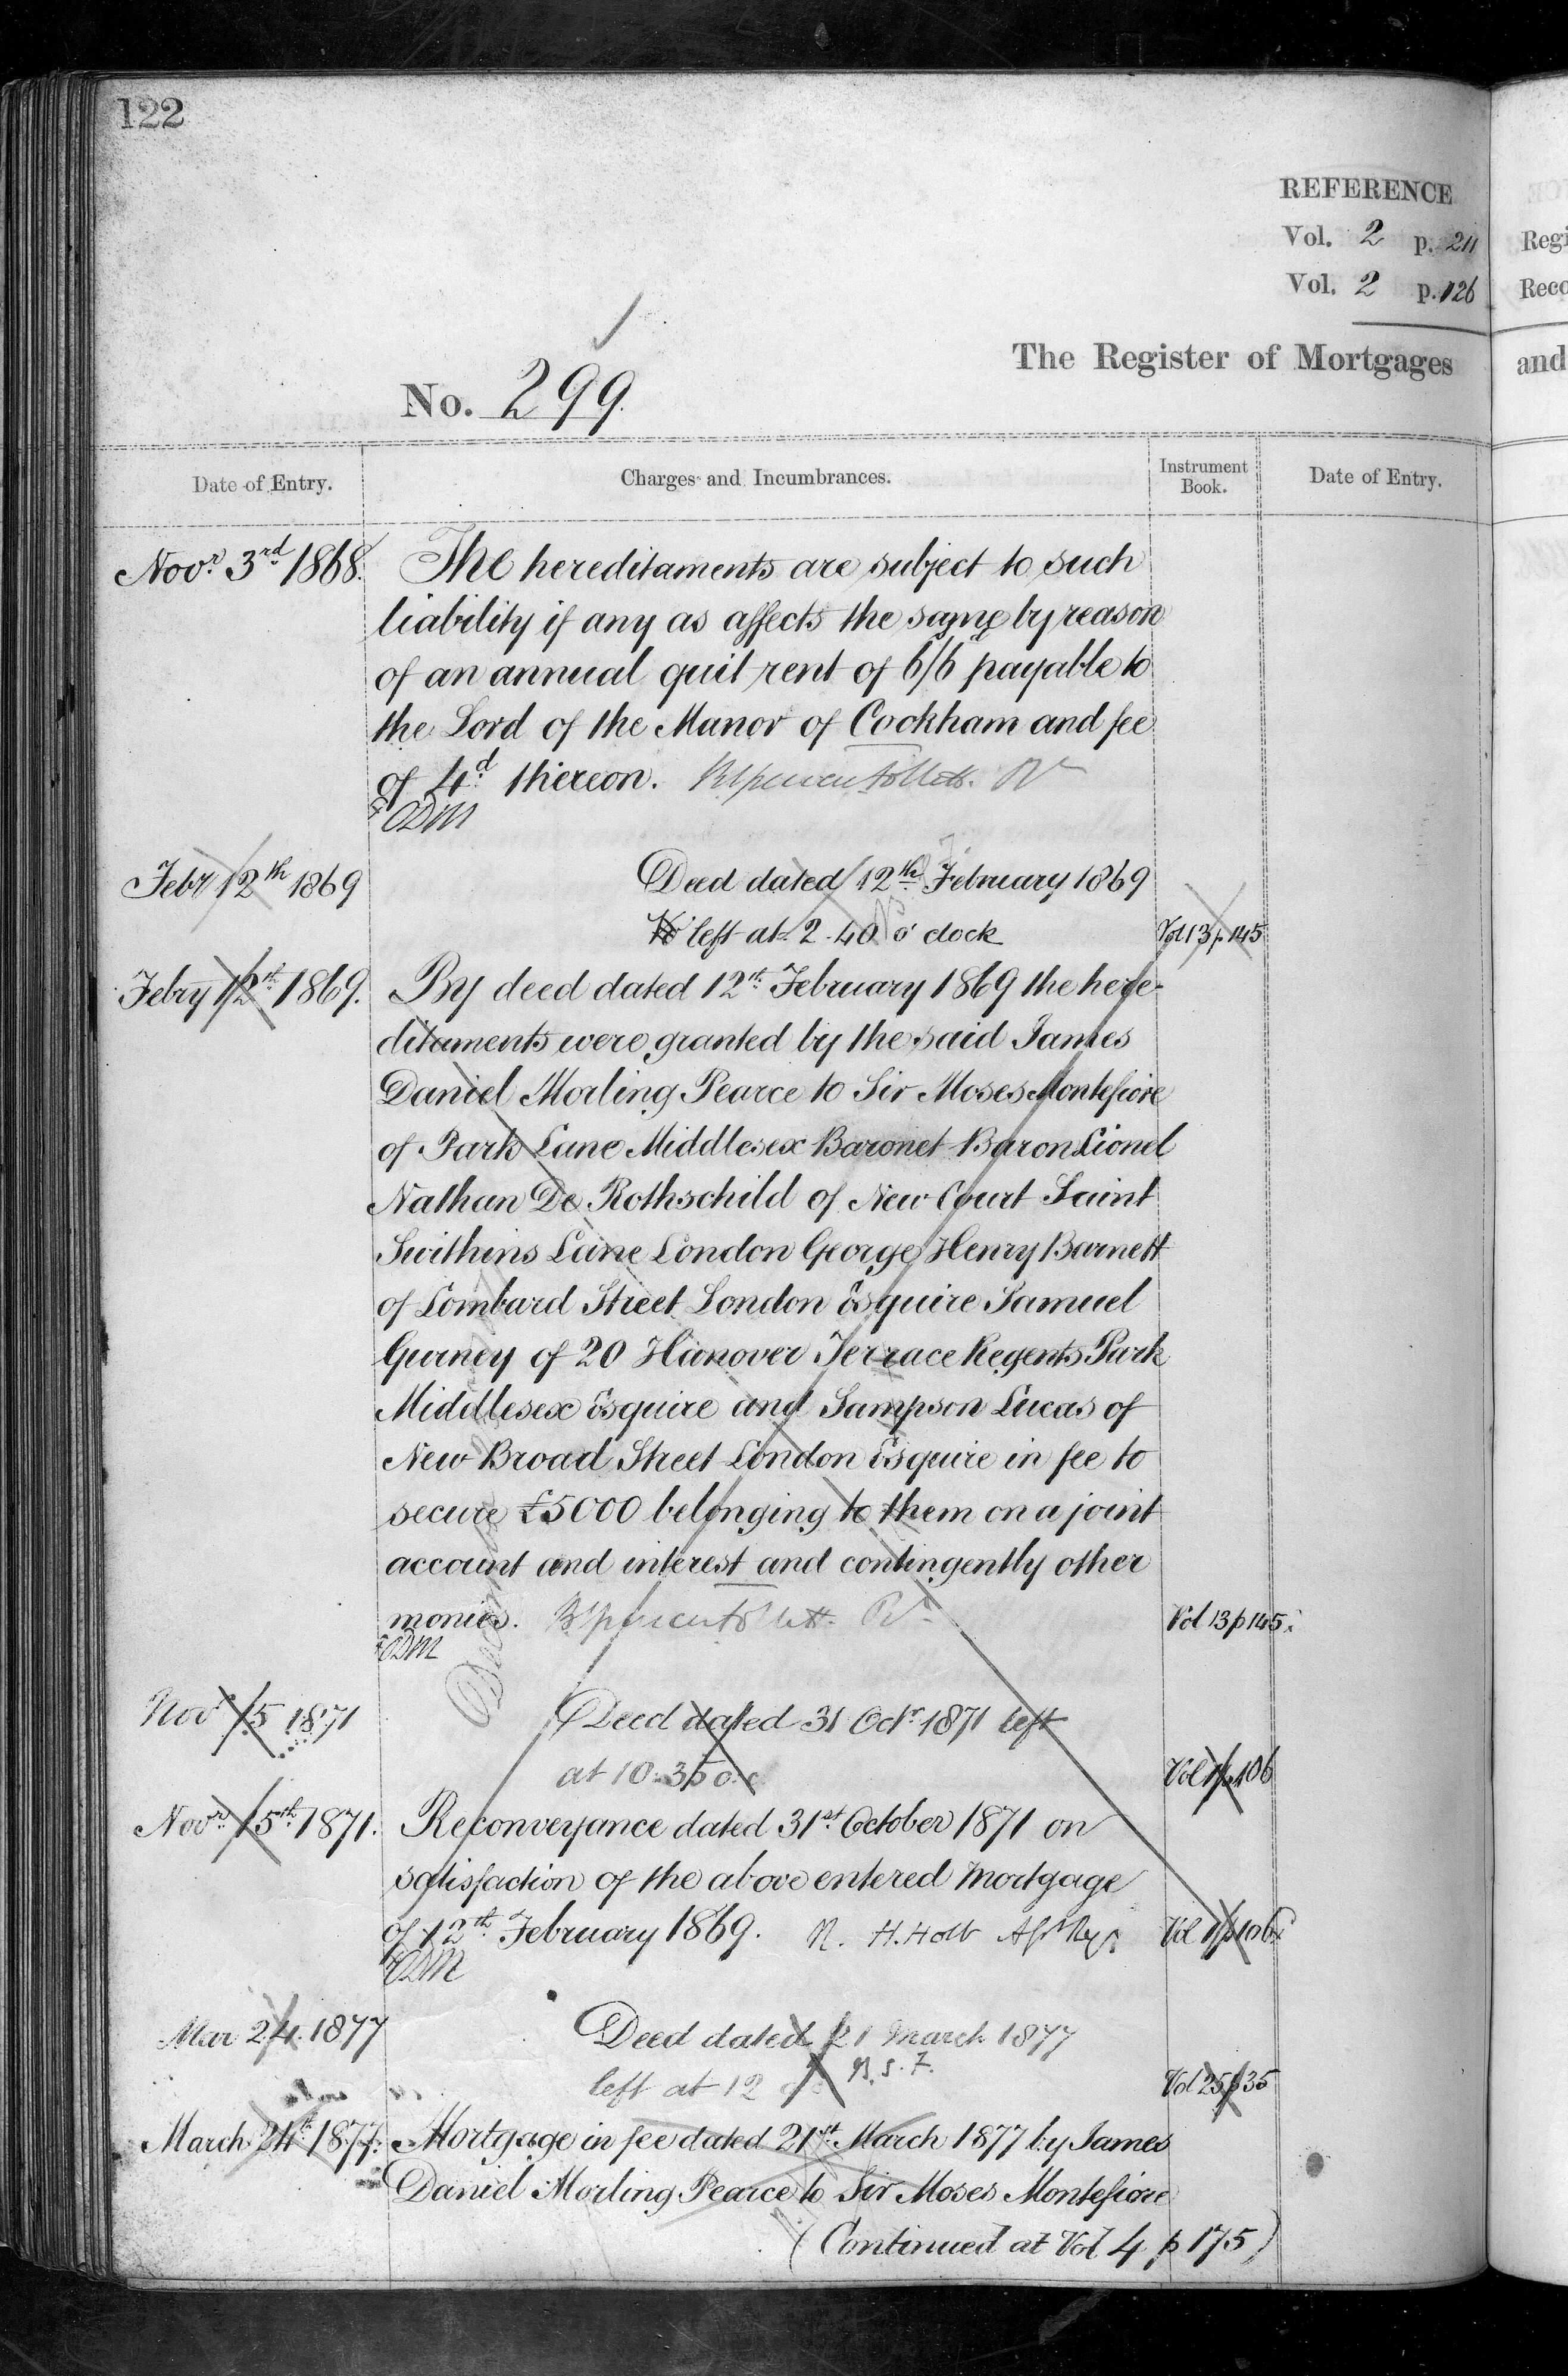 122
REFERENCE
Vol. 2 p. 211
Vol. 2 p. 126
The Register of Mortgages
No. 299.
Date of Entry.
Charges and Incumbrances.
Instrument Book.
Date of Entry.
Novr. 3rd 1868. The hereditaments are subject to such
liability if any as affects the same by reason
of an annual quit rent of 6/6 payable to
the Lord of the Manor of Cockham and fee
of 4d. thereon.
Febr 12th 1869 Deed dated 12th February 1869
left at 2.40 o' clock Vol 13 p 145
Febry 12th. 1869. By deed dated 12th. February 1869 the here-
ditaments were granted by the said James
Daniel Morling Pearce to Sir Moses Montefiore
of Park Lane Middlesex Baronet Baron Lionel
Nathan De Rothschild of New Court Saint
Swithins Lane London George Henry Barnett
of Lombard Street London Esquire Samuel
Gurney of 20 Hanover Terrace Regents Park
Middlesex Esquire and Sampson Lucas of
New Broad Street London Esquire in fee to
secure £5000 belonging to them on a joint
account and interest and contingently other
monies. Vol 13 p 145
Novr 15 1871 Deed dated 31 Octr. 1871 left
at 10.35 o.c Vol 1 p 106
Novr. 15th. 1871. Reconveyance dated 31st. October 1871 on
satisfaction of the above entered Mortgage
of 12th. February 1869. R. H. Holt Vol 1 p 106
Mar 24. 1877 Deed dated 21 March 1877
left at 12 Vol 25 p 35
March 24th. 1877. Mortgage in fee dated 21st. March 1877 by James
Daniel Morling Pearce to Sir Moses Montefiore
(Continued at Vol 4 p 175)
Regi
Reco
and